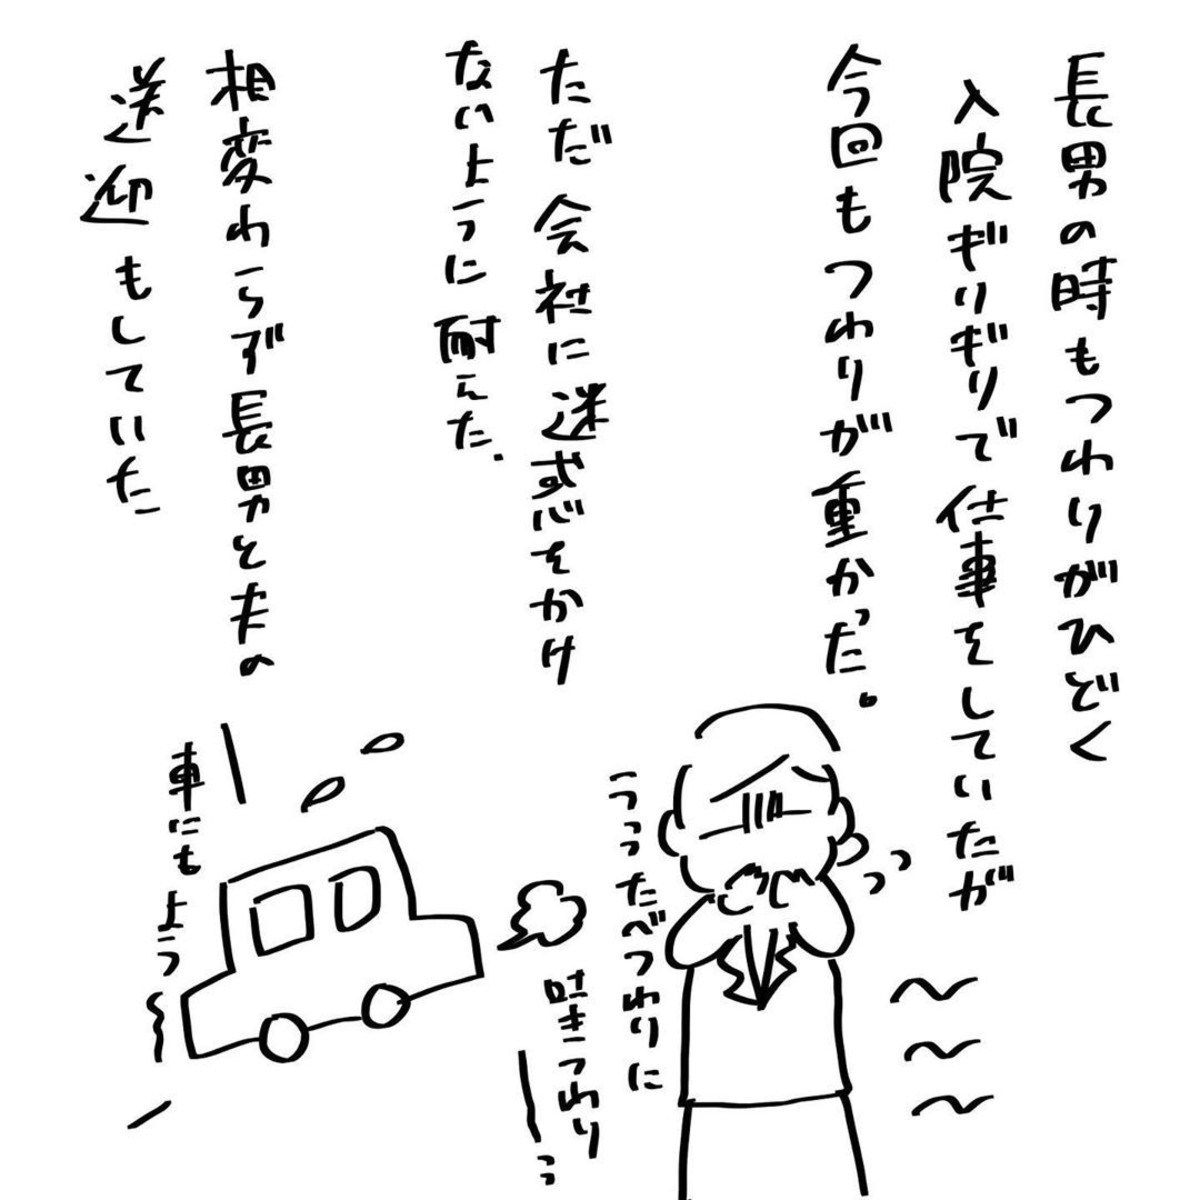 長男の時もつわりがひどく
入院ギリギリで仕事をしていたが
今回もつわりが重かった。
ただ会社に迷惑をかけ
ないように耐えた.
相変わらず長男と夫の
送迎もしていた
うっったべつわりに
吐きつわり
ーっ
車にも
よーう